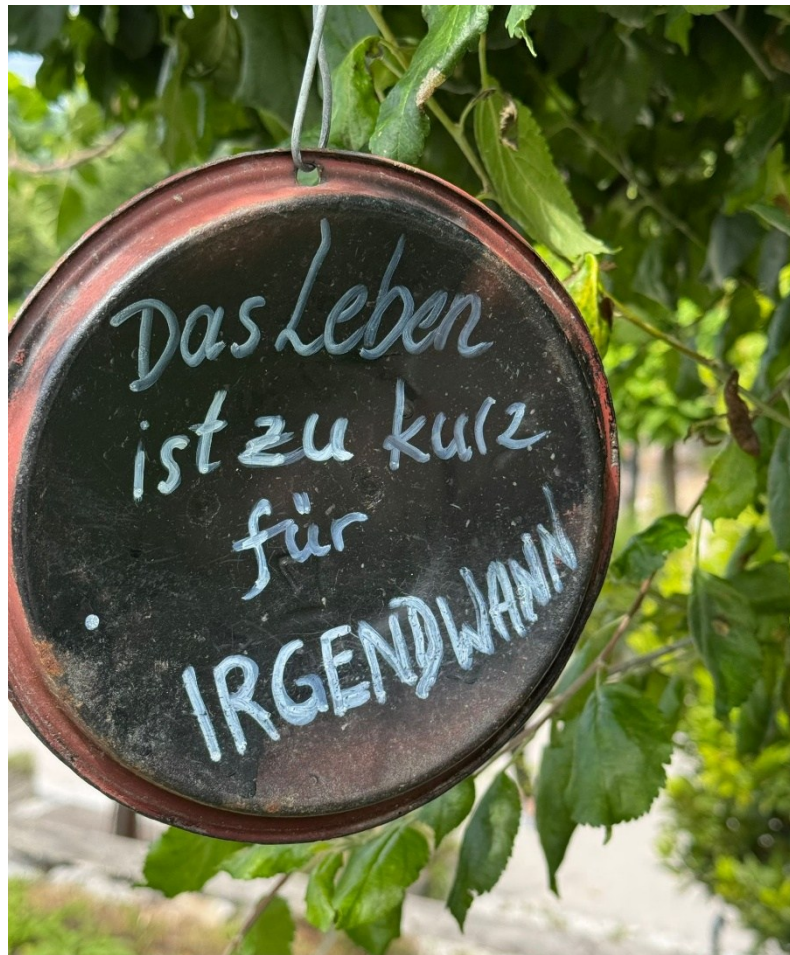 Das Leben
ist zu kurz
für
IRGENDWANN